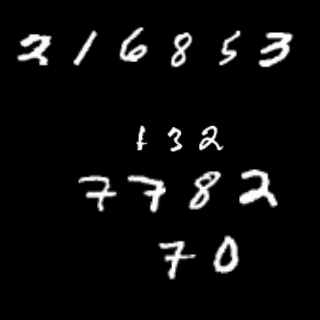 216853
132
7782
70